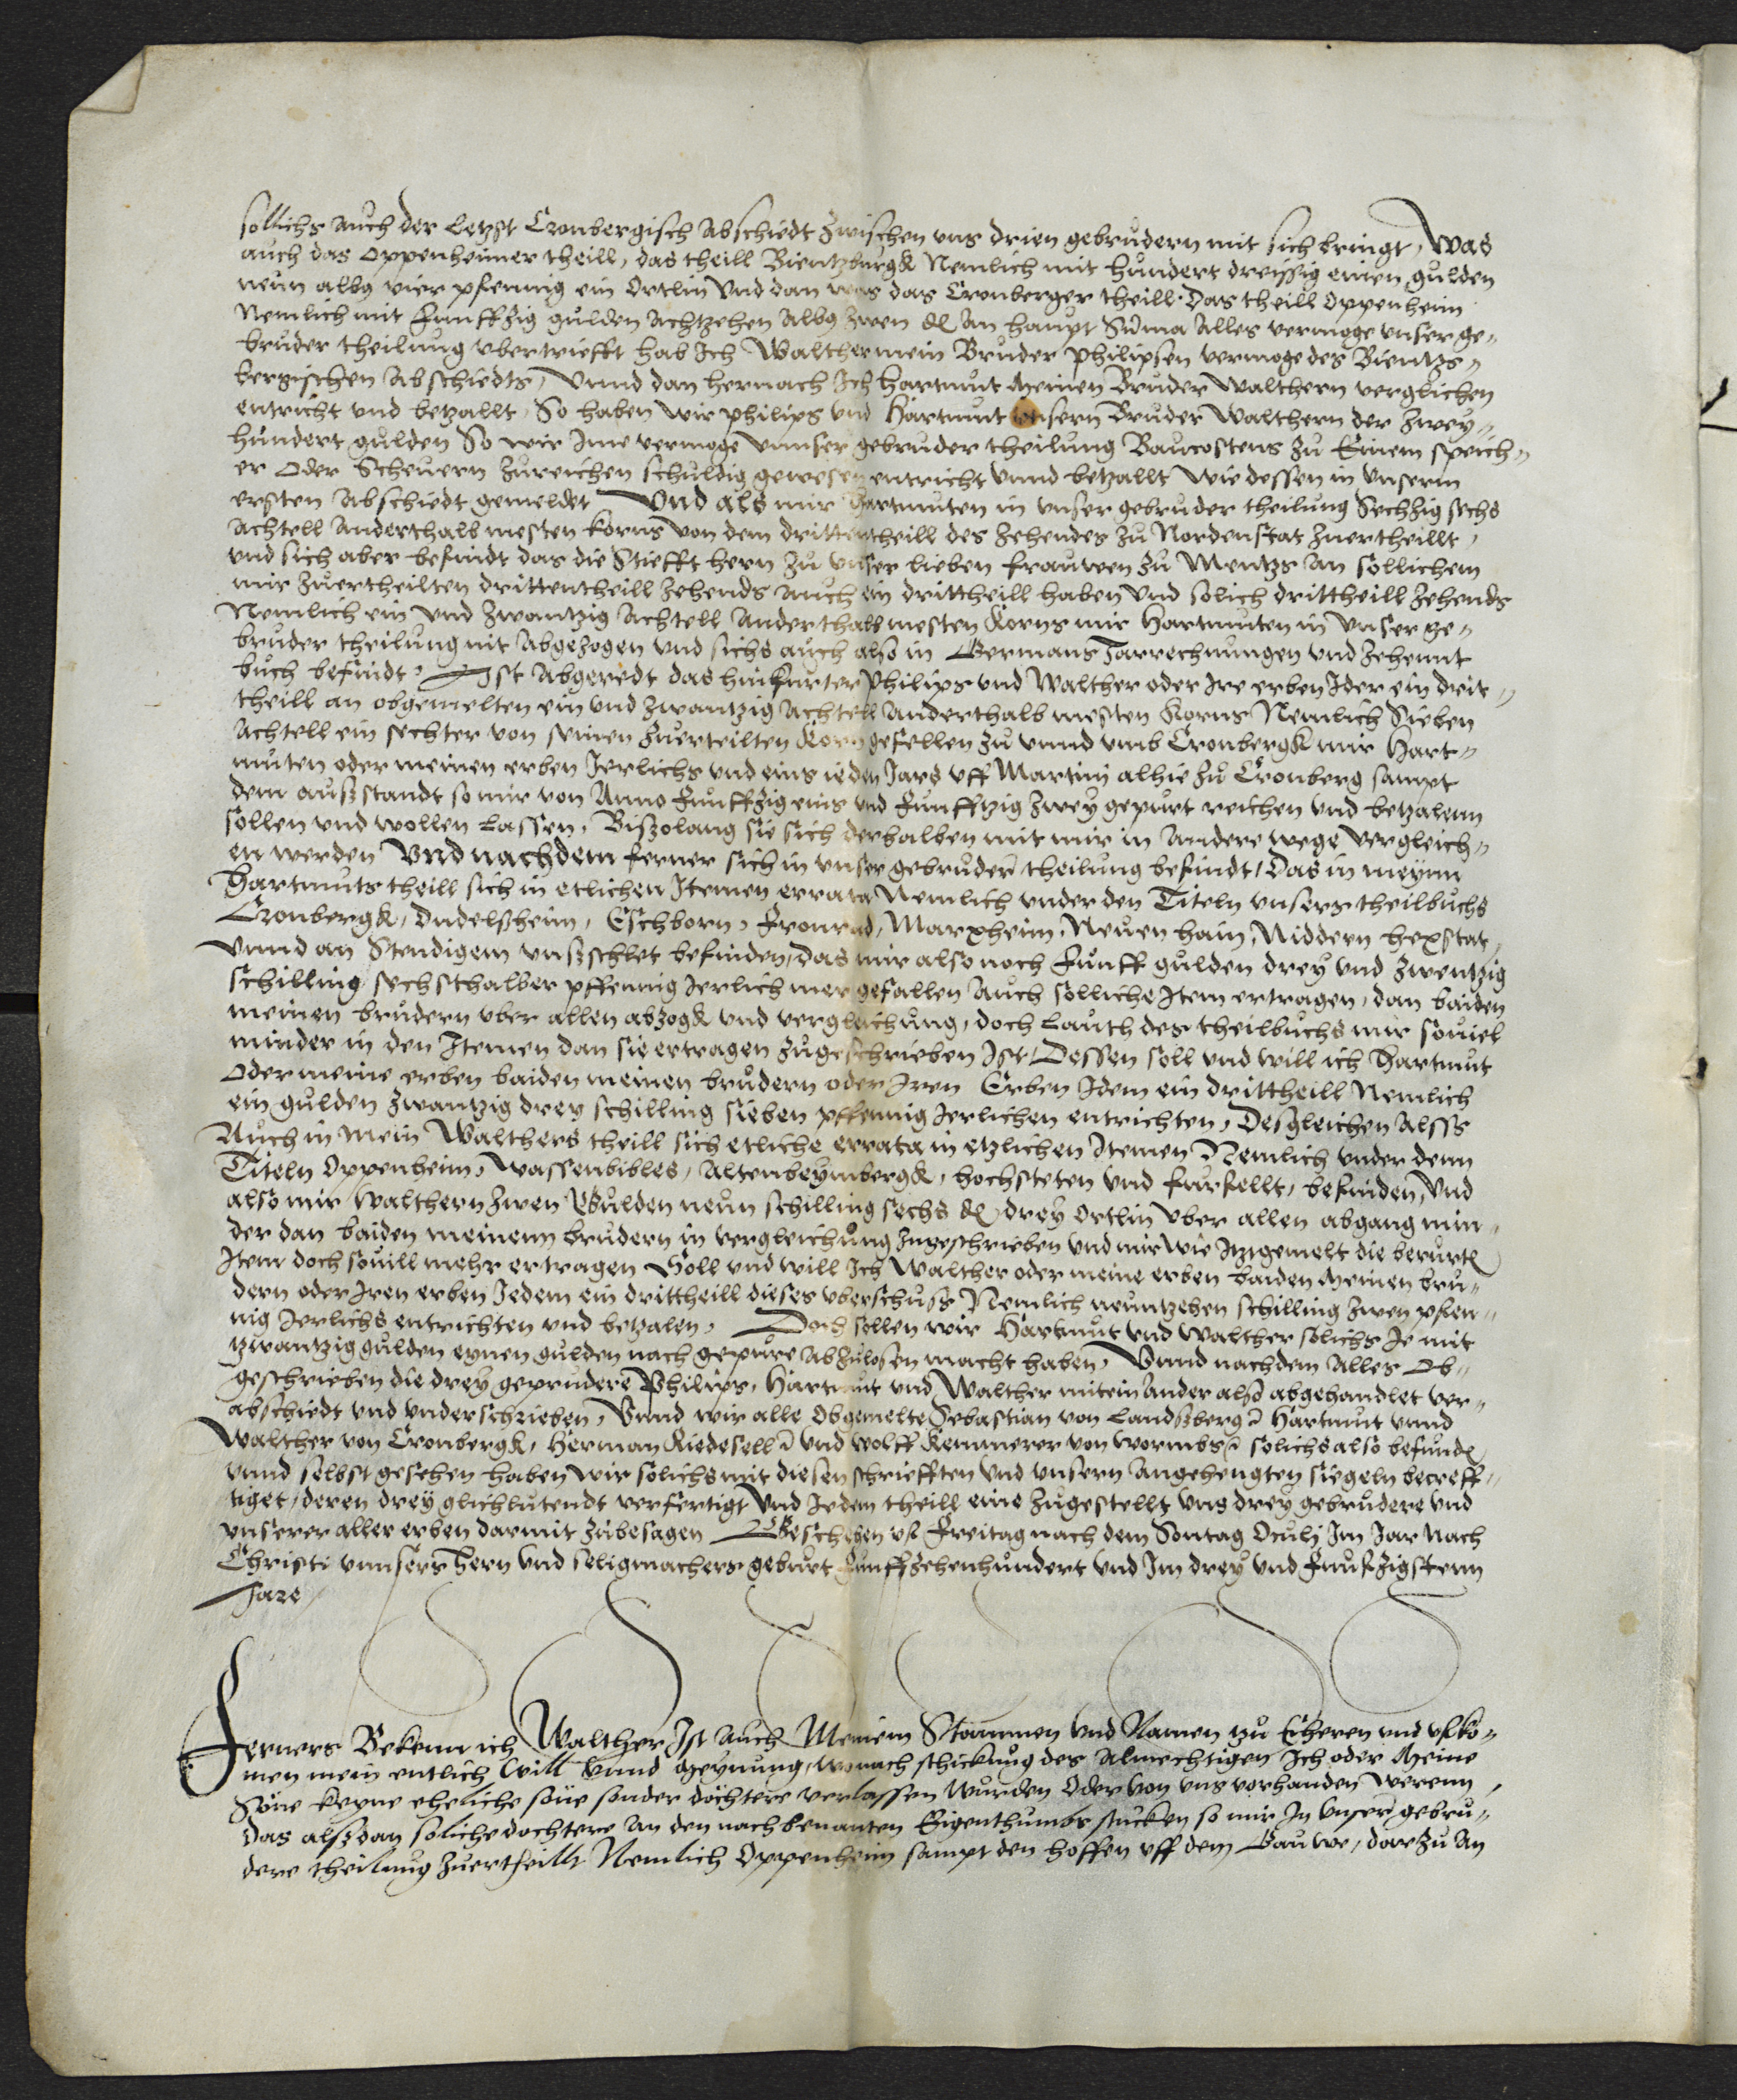 sollichs auch der Letzst Cronbergisch Abschiedt zwischen vns drien gebrudern mit sich bringt, Was
auch das Oppenheimer theill, das theill Bientzburgk Nemlich mit hundert dreissig einen gulden
neun albus vier pfennig ein Ortlin Vnd dan was das Cronberger theill. Das theill Oppenheim
Nemlich mit Funffzig gulden Achtzehen Albus zwen d An haupt Suma Alles vermoge vnser ge-
bruder theilung vbertriefft hab Ich Walther mein Bruder Philipsen vermoge des Bientzs-
bergischen Abschiedts, Vnnd dan hernach Ich Hartmut meinen Bruder Walthern verglichen
entricht vnd betzallt, So haben wir Philips vnd Hartmut vnsern Bruder Walthern der zwey-
hundert gulden So wir Ime vermoge vnnser gebruder theilung Baucostens zu Einem speich-
er Oder Scheuern zureichen schuldig gewesen entricht vnnd betzallt Wie dessen in vnserm
ersten Abschiedt gemeldet Vnd als mir Hartmuten in vnser gebruder theilung Sechzig sechs
Achtell Anderthalb mesten korns von dem drittentheill des Zehendes zu Nordenstat zuertheillt,
vnd sich aber befindt das die Stiefft hern zu vnser lieben frauwen zu Mentzs an sollichem
mir zuertheilten drittentheill Zehends auch ein drittheill haben vnd solich drittheill Zehends
Nemlich ein vnd zwantzig Achtell Anderthalb mesten Korns mir Hartmuten in vnser ge-
bruder theilung nit Abgezogen vnd sichs auch also in Germans Jarrechnungen vnd Zehennt
buch befindt, Ist Abgeredt das hinfurter Philips vnd Walther oder Ire erben Ider ein drit-
theill an obgemelten ein vnd zwantzig Achtell Anderthalb mesten Korns Nemlich Sieben
Achtell ein sechter von seinen zuerteilten Korngefellen zu vnnd vmb Cronbergk mir Hart-
muten oder meinen erben Jerlichs vnd eins ieden Jars vff Martini alhie zu Cronberg sampt
dem aussstandt so mir von Anno Funffzig eins vnd Funfftzig zwey gepurt reichen vnd betzalenn
sollen vnd wollen Lassen, Biszolang sie sich derhalben mit mir in Andere wege vergleich-
en werden Vnd nachdem ferner sich in vnser gebruder theilung befindt, Das in meynn
Hartmuts theill sich in etlichen Itemen errata Nemlich vnder den Titeln vnsers theilbuchs
Cronbergk, Dudelssheim, Eschborn, Fronrad, Marxheim, Neuenhain, Niddern hexstat,
vnnd an Stendigem vnsschlet befinden, das mir also noch Funff gulden drey vnd zwentzig
schilling sechsthalber pffennig Jerlich mer gefallen Auch solliche Item ertragen, dan baiden
meinen brudern vber allen abzogk vnd vergleichung, doch Lauth des theilbuchs mir souiel
minder in den Itemen dan sie ertragen zugeschrieben Ist, Dessen soll vnd will ich Hartmut
Oder meine erben baiden meinen brudern oder Iren Erben Idem ein drittheill Nemlich
ein gulden zwantzig drey schilling sieben pffennig Jerlichen entrichten, Desgleichen Alsss
Auch in Mein Walthers theill sich etliche errata in etzlichen Itemen Nemlich vnder denn
Titeln Oppenheim, Wassenbibles, Altenbeymbergk, hochsteten vnd furfellt, befinden, Vnd
also mir Walthern zwen Gulden neun schilling sechs d drey Ortlin vber allen abgang min-
der dan baiden meinenn brudern in vergleichung zugeschrieben vnd mir wie Itztgemelt die berurten
Item doch souill mehr ertragen Soll vnd will Ich Walther oder meine erben baiden meinen bru-
dern oder Iren erben Jedem ein drittheill dieses vberschuss Nemlich neuntzehen schilling zwen pfen-
nig Jerlichs entrichten vnd betzalen, Doch sollen wir Hartmut vnd Walther solichs Je mit
tzwantzig gulden eynen gulden nach gepure abzulosen macht haben, Vnnd nachdem Alles Ob-
geschrieben die drey geprudere Philips, Hartmut vnd Walther mitein Ander also abgehandlet ver-
abschiedt vnd vnderschrieben, Vnnd wir alle Obgemelte Sebastian von Landssberg Hartmut vnnd
Walther von Cronbergk, Herman Riedesell vnd Wolff Kemmerer von Wormbs solichs also befunden
vnnd selbst gesehen haben wir solichs mit diesen schriefften vnd vnsern Angehengten siegeln becreff-
tiget, deren drey glichlutendt verfertigt Vnd Jedem theill eine zugestellt vns drey gebrudere vnd
vnserer aller erben darmit zubesagen Geschehen vf Freitag nach dem Sontag Oculj Im Jar Nach
Christi vnnsers Hern vnd seligmachers geburt Funffzehenhundert vnd Im drey vnd Funfzigstenn
Jare
Ferners Bekenn ich Walther Ist Auch Meinem Stammen vnd Namen tzu Eheren vnd vfko-
men mein entlich Will Vnnd Meynung, wo nach schickung des Almechtigen Ich oder Meine
Söne keyne eheliche söne sonder döchtere verlassen wurden Oder von vns vorhanden werenn,
Das alssdan soliche dochtere An den nachbenanten Eigenthumbs stucken so mir In Vnser gebru-
dere theilung zuertheillt Nemlich Oppenheim sampt den hoffen vff dem Gauwe, darzu An